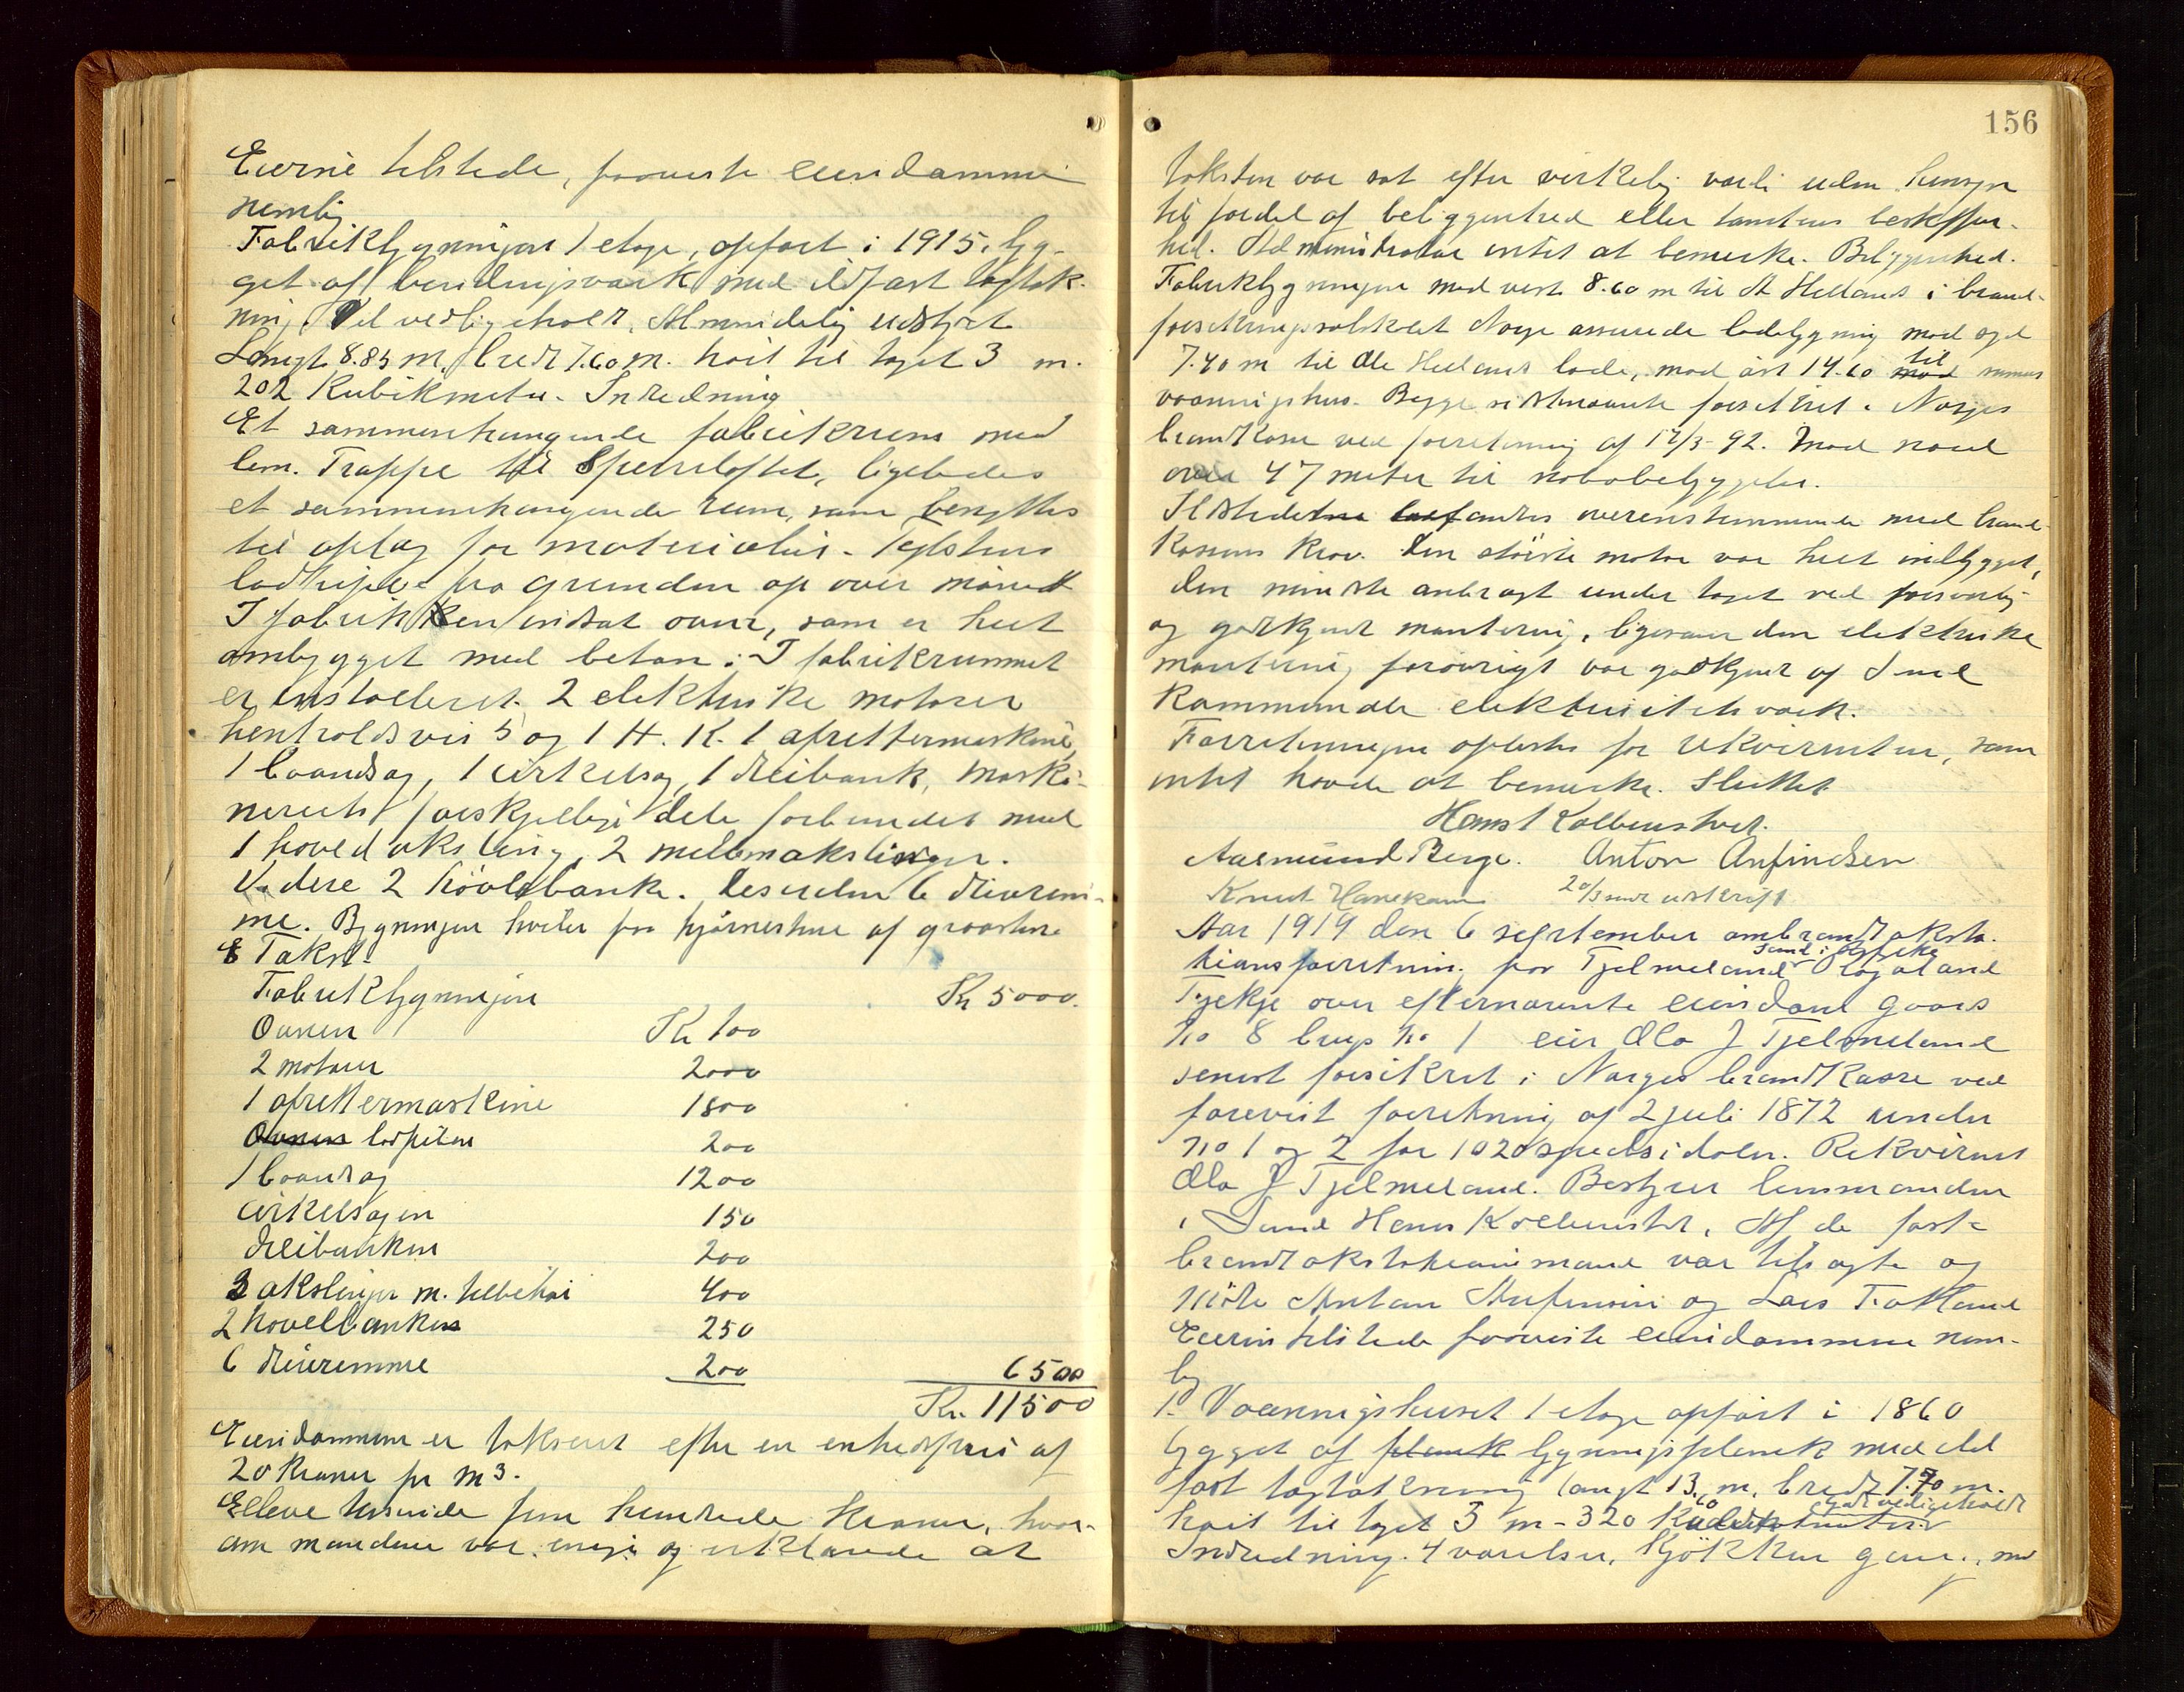 Eierne tilstede, paaviste eiendommen
nemlig
Fabrikbygningen 1 etage, opført i 1915, byg-
get af bindingsværk med ildfast tagtæk-
ning, Vel vedligeholdt, Almindelig udstyret
Længt 8.85 m, bredt 7.60 m. høit til taget 3 m.
202 Kubikmeter. Indredning
Et sammenhængende fabrikrum med
lem. Trappe til Sperreloftet, ligeledes
et sammenhængende rum, som benyttes
til oplag for materialier. Teglstens
lodpipe fra grunden op over mønet
I fabrikken indsat ovner, som er helt
ombygget med beton: I fabrikrummet
er installeret. 2 elektriske motorer
henholdsvis 5 og 1 H.K. 1 afrettermaskine,
1 baandsag, 1 cirkelsag, 1 dreibank, Maski-
neriets forskjellige dele forbundet med
1 hoved aksling, 2 mellemakslinger.
Videre 2 høvlebænke. Desuden 6 drivrem-
me. Bygningen hviler paa hjørnestene af graasten
Takst
Fabrikbygningen Kr 5000.
Ovnen Kr 100
2 motorer 2000
1 afrettermaskine 1800
Ovnen lodpiben 200
1 baandsag 1200
cirkelsagen 150
dreibanken 200
3 akslinger m. tilbehør 400
2 høvelbænken 250
6 drivremme 200 6500
Kr. 11500
Eiendommen er takseret efter en enhedspris af
20 kroner pr m3.
Elleve tusinde fem hundrede kroner, hvor-
om mændene var enige og erklærede at
156
taksten var sat efter virkelig værdi uden hensyn
til fordel af beliggenhed eller tomtens beskaffen-
hed. Administrator intet at bemerke. Beliggenhed.
Fabrikbygningen mod vest 8.60 m til A Hellands i brand-
forsikringsselskabet Norge assurerede ladebygning mod syd
7.40 m til Ole Hellands lade, mod øst 14.60 mod til sammes
vaaningshus. Begge sidstnævnte forsikret i Norges
brandkasse ved forretning af 17/3-92. Mod nord
over 47 meter til nabobebyggelse.
Ildstedetne befandtes overensstemmende med brand-
kassens krav. Den største motor var helt indbygget,
den mindste anbragt under taget ved forsvarlig
og godkjendt montering, ligesom den elektriske
montering forøvrigt var godkjent af Sund
Kommunale elektricitetsværk.
Forretningen oplæstes for rekvirenten, som
intet havde at bemerke. Sluttet
Hans Kolbenstvet.
Aasmund Berge. Anton Anfindsen
Knut Hanekam 20/3 sendt udskrift
Aar 1919 den 6 september ombrandtakста-
tionsforretning paa Tjelmeland Sund i Bjelke lagaland
Tjekje over efternævnte eiendom gaards
No 8 brugs No 1 eier Ola J Tjelmeland
senest forsikret i Norges brandkasse ved
forevist forretning af 2 juli 1872 under
No 1 og 2 for 1020 speciesdaler. Rekvirent
Ola J Tjelmeland. Bestyrer lensmanden
i Sund Hans Kolbenstvet. Af de faste
brandtakstationsmænd var tilsagte og
mødte Anton Anfinsen og Lars Toftland
Eieren tilstede paaviste eiendommene nem-
lig
1. Vaaningshuset 1 etage opført i 1860
bygget af plank bygningsplank med ild
fast tagtækning langt 13.60 m, bredt 7.70 m.
høit til taget 3 m - 320 Kubikmeter godt vedligeholdt
Indredning. 4 værelser, kjøkken gang, med